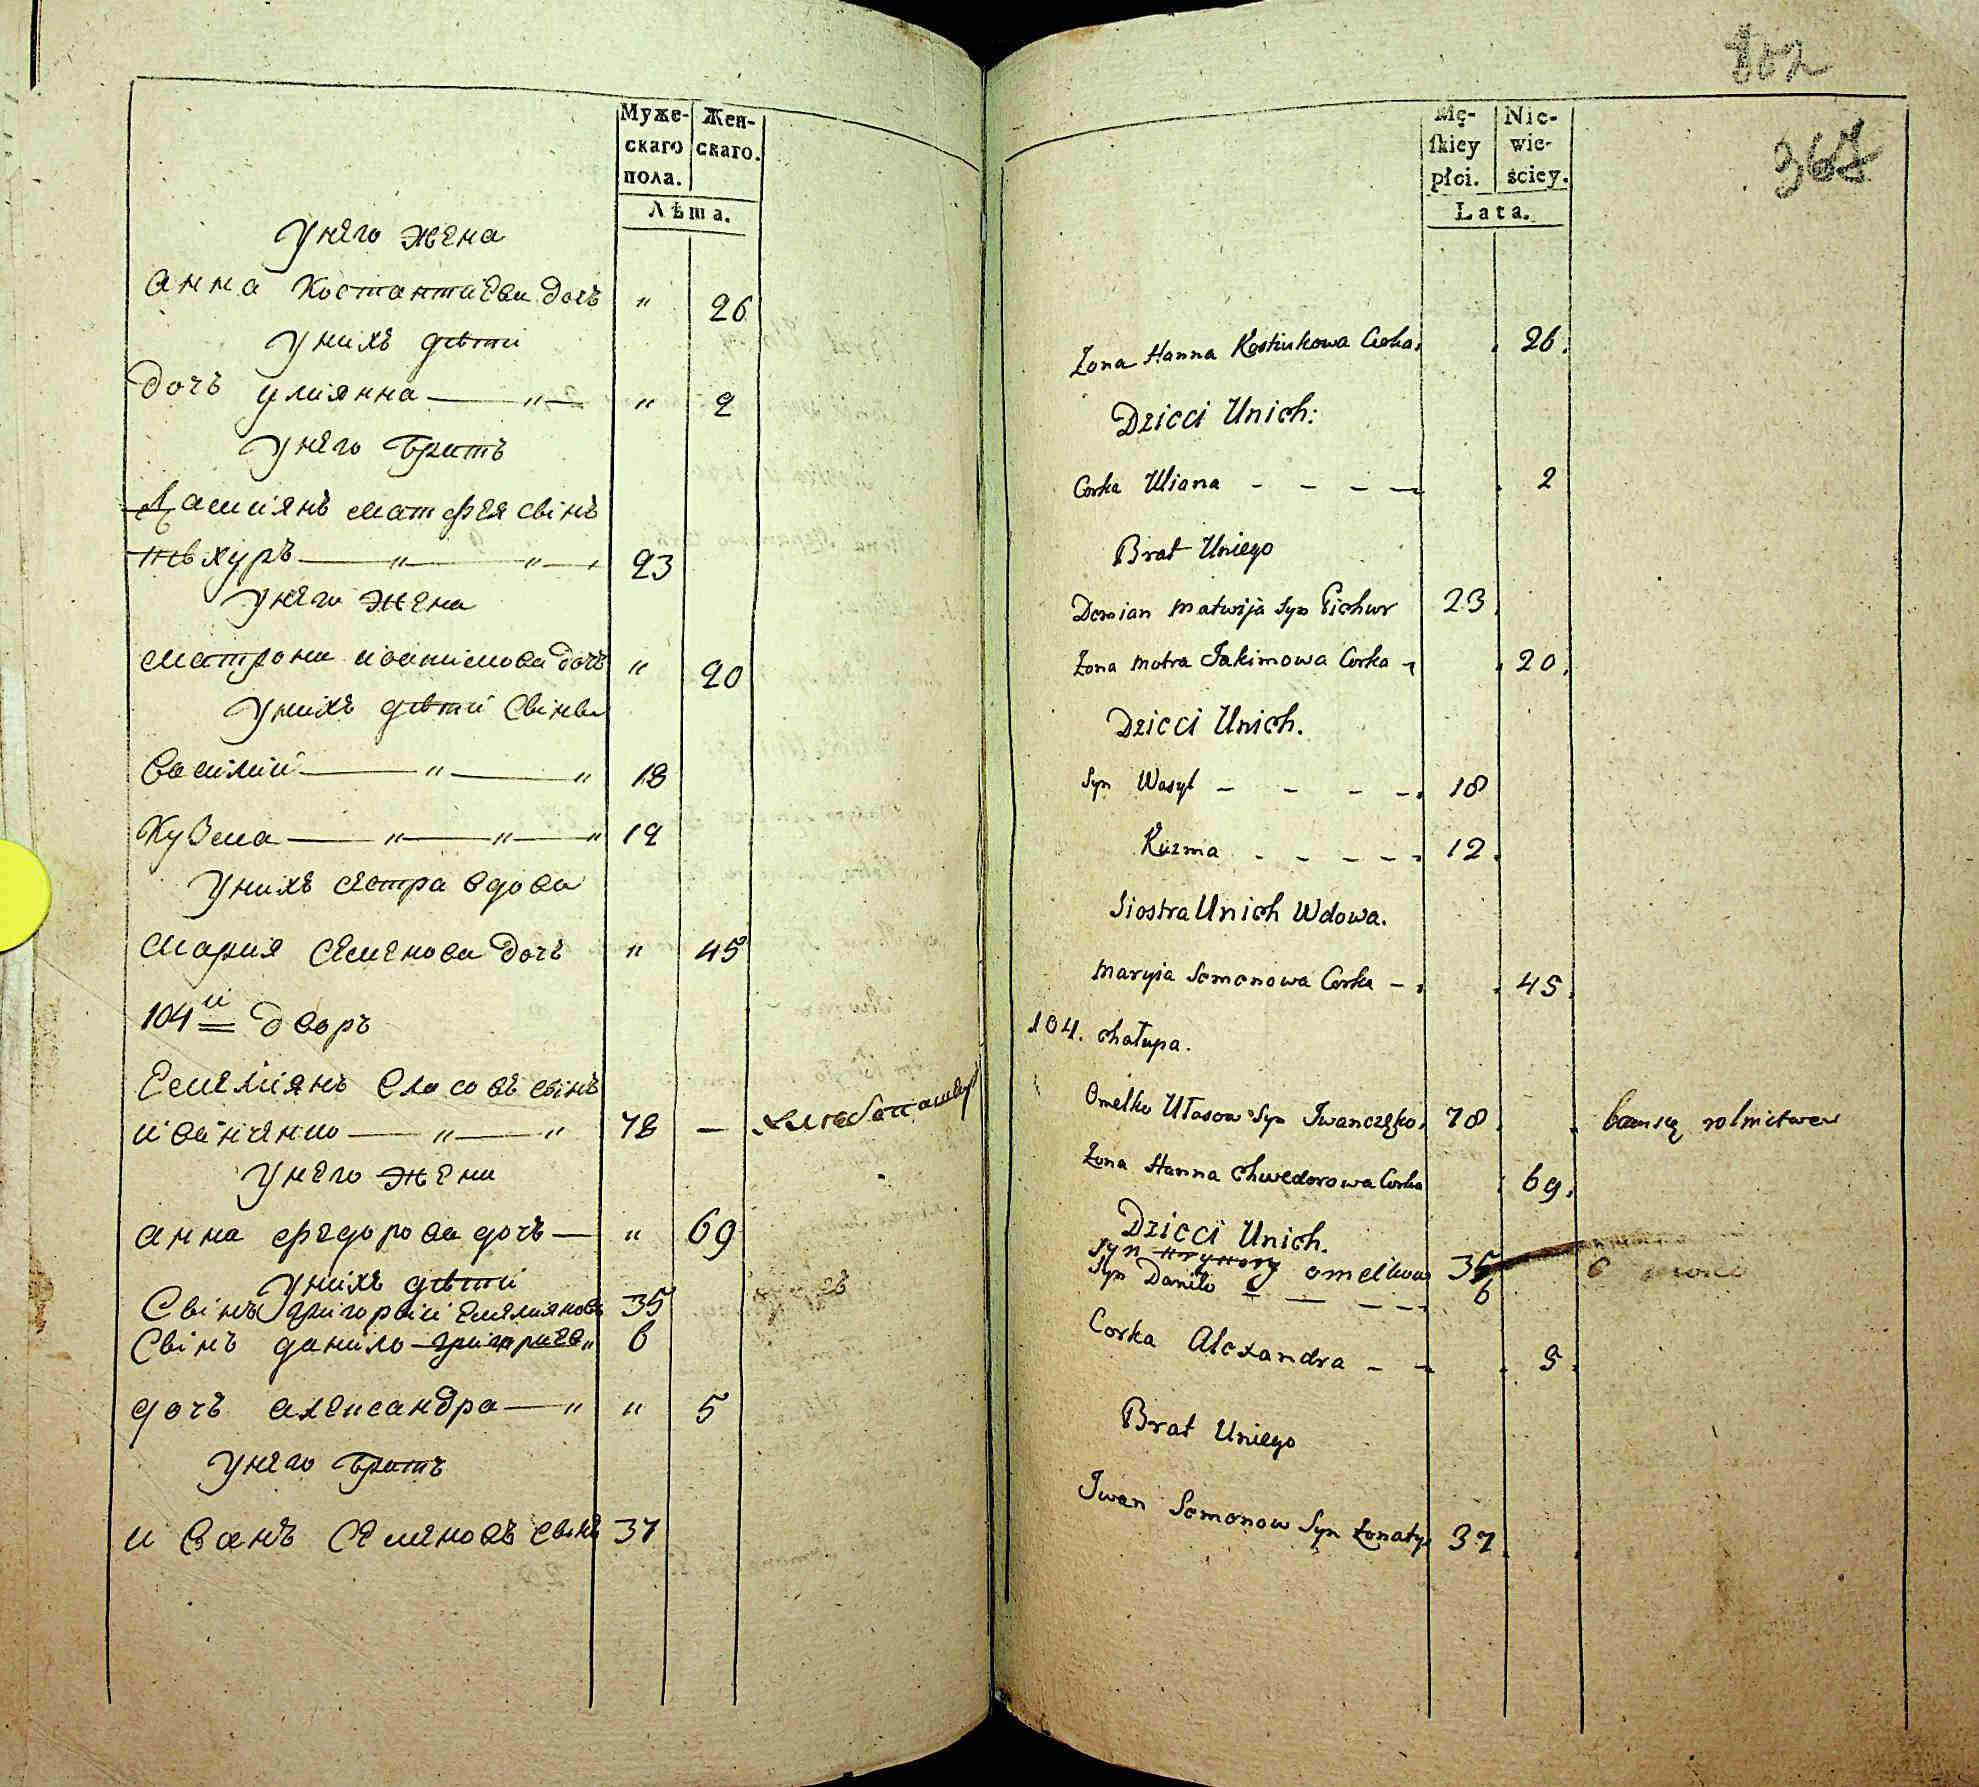 Муже-
скаго
пола.
Жен-
скаго.
Лѣта.
У него жена
Анна Костантиева дочь " 26
У нихъ дѣти
Дочь Улиянна — " — " 2
У него братъ
Дамиянъ Матфея сынъ
Пѣхуръ — " — " — 23
У него жена
Матрона Иоакимова дочь " 20
У нихъ дѣти сыны
Василии — " — " 18
Кузма — " — " — " 12
У нихъ сестра вдова
Мария Семенова дочь " 45
104й дворъ
Емелиянъ Власовъ сынъ
Иванченко — " — " 78 — хлебопашецъ
У него жена
Анна Федорова дочь — " 69
У нихъ дѣти
Сынъ Григории Емелияновъ 35
Сынъ Данило — 6
Дочь Александра — " " 5
У него братъ
Иванъ Семеновъ сынъ 37
362
Mę-
skiey
płci.
Nie-
wie-
ściey.
Lata.
Żona Hanna Kostiukowa Corka. 26.
Dzieci Unich:
Corka Uliana - - - - 2
Brat Uniego
Demian Matwija Syn Pichur 23
Żona Motra Jakimowa Corka - 20.
Dzieci Unich.
Syn Wasyl - - - - 18
Kuzma - - - - - 12.
Siostra Unich Wdowa.
Maryia Semenowa Corka - 45.
104. Chałupa.
Omelko Ułasow Syn Iwanczęko. 78 rolnictwem
Żona Hanna Chwedorowa Corka 69.
Dzieci Unich.
Syn Hryhory Omelkow 35
Syn Daniło - - - 6
Corka Alexandra - - 5.
Brat Uniego
Iwan Semenow Syn Żonaty. 37